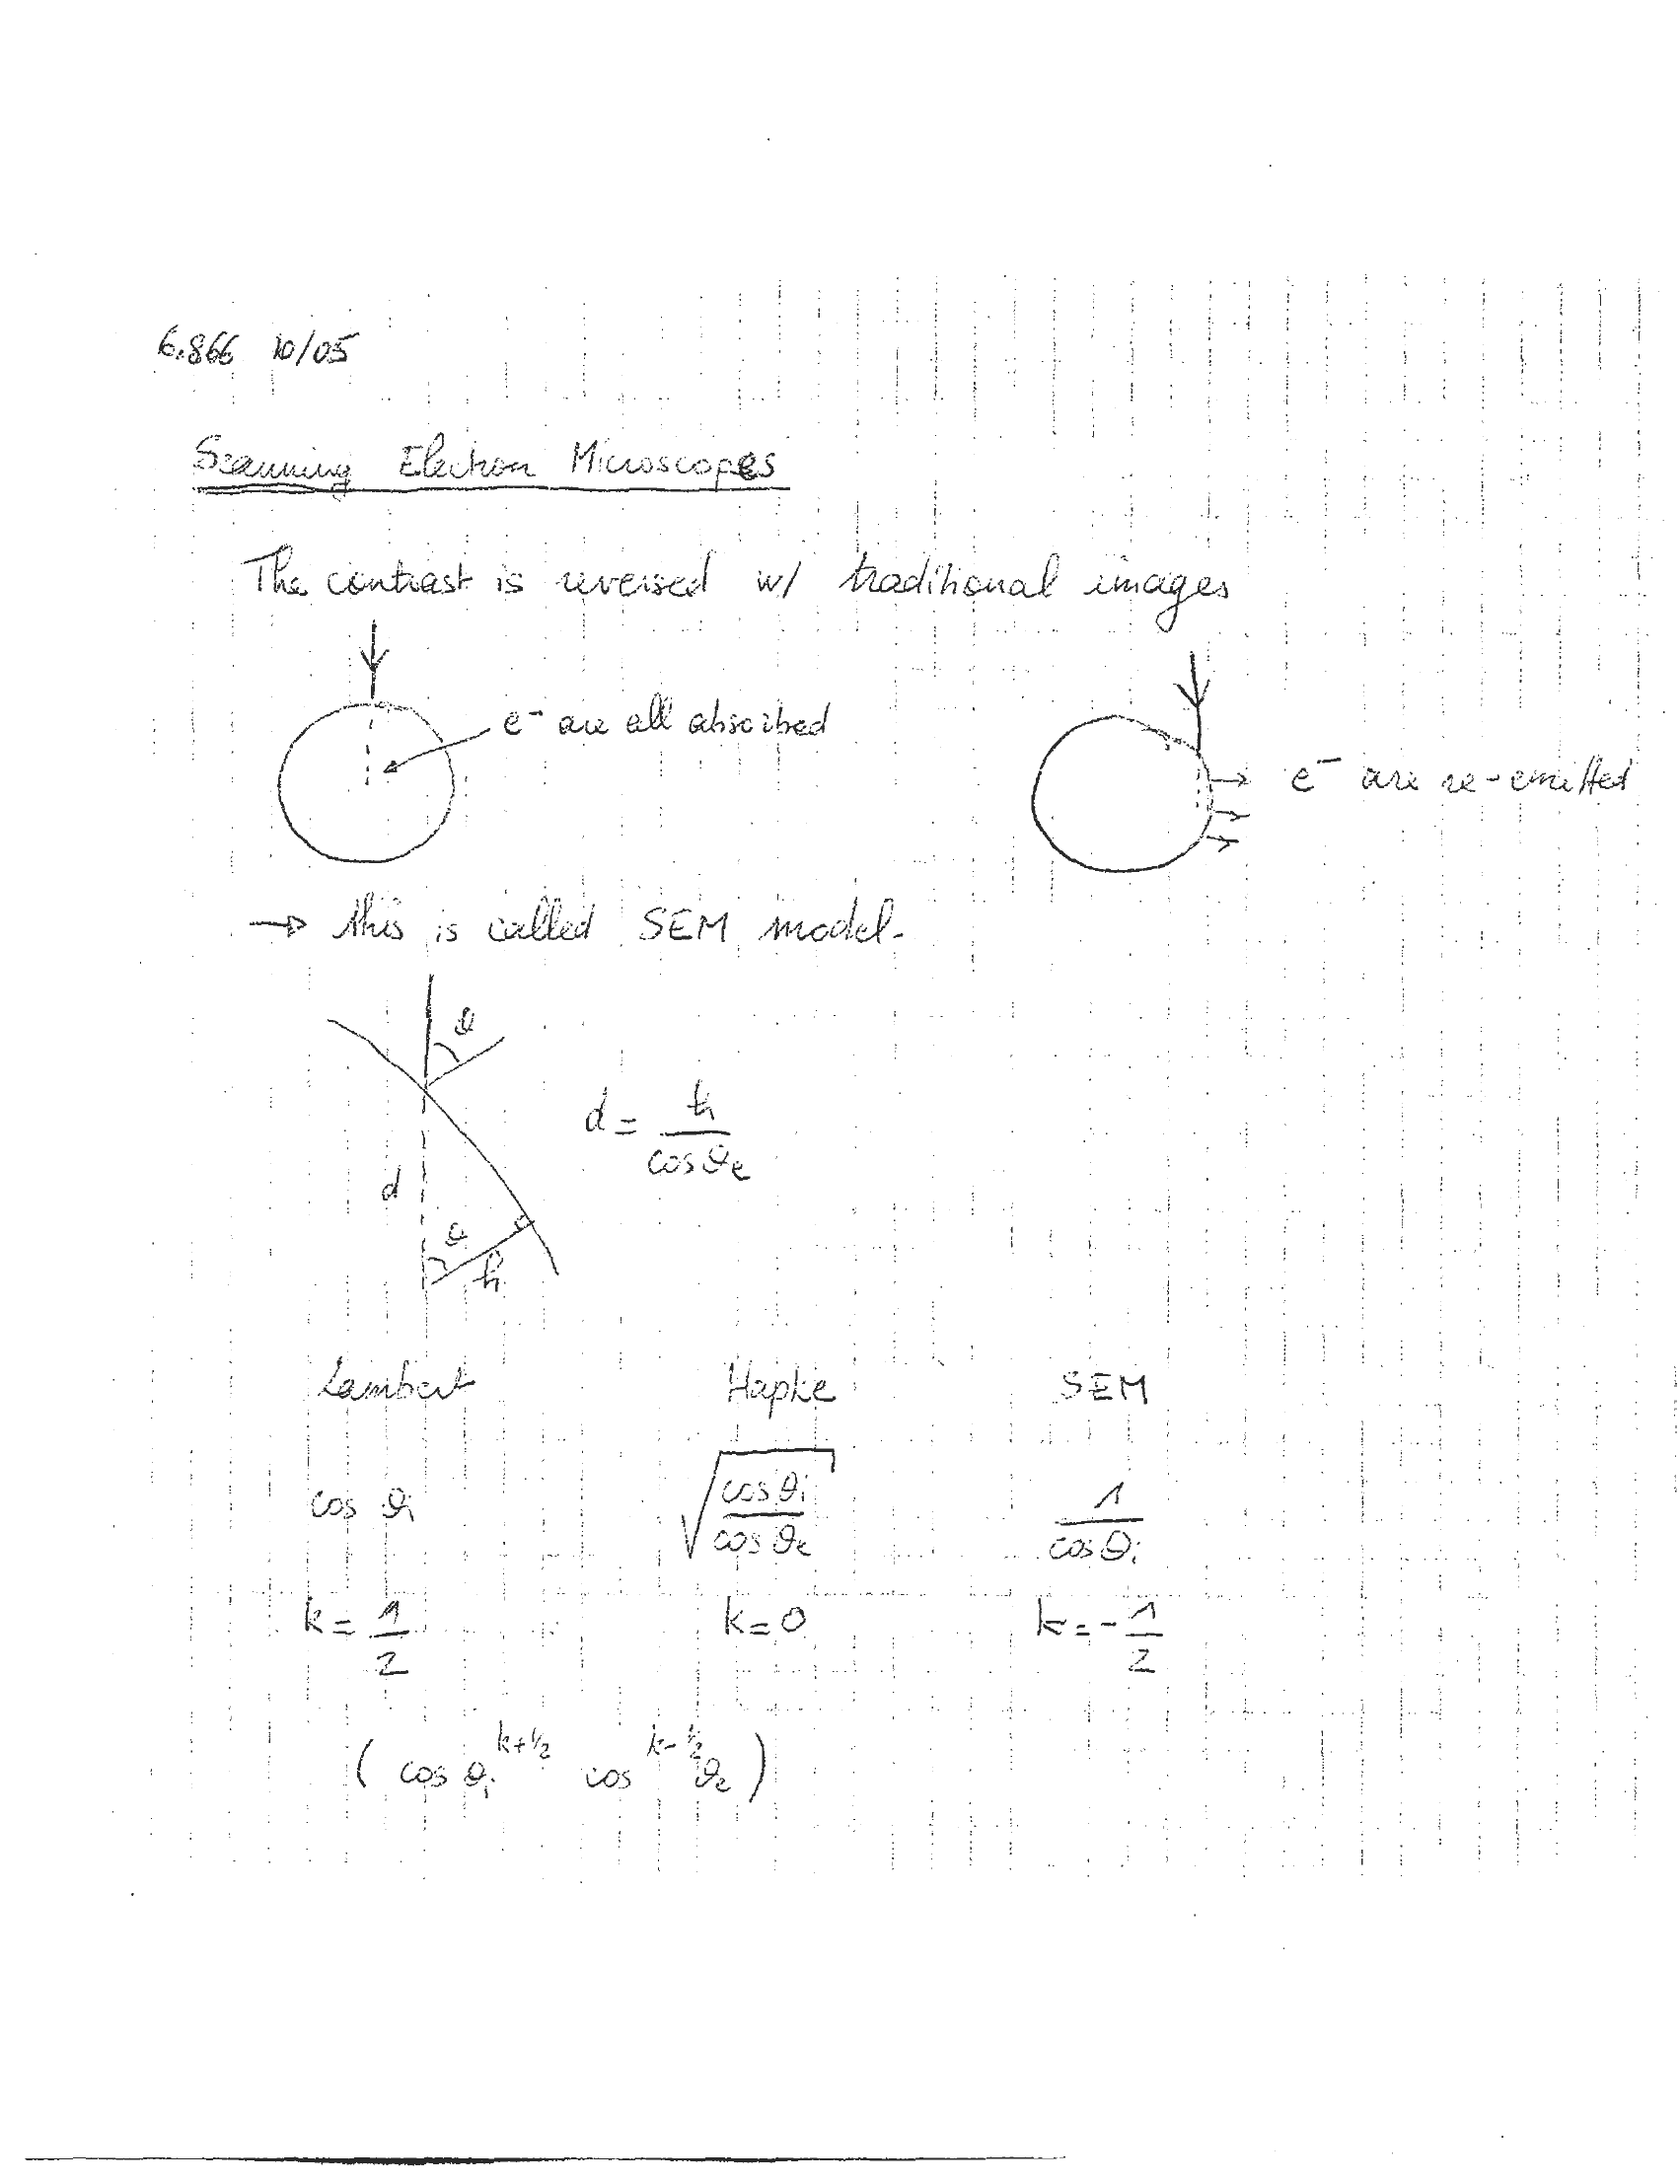 6.866 10/05
Scanning Electron Microscopes
The contrast is reversed w/ traditional images
e⁻ are all absorbed
e⁻ are re-emitted
→ this is called SEM model.
θ
d = h / cos θe
d
θ
h
Lambert Hapke SEM
cos θi √(cos θi / cos θe) 1 / cos θi
k = 1/2 k = 0 k = -1/2
( cos θi^(k+1/2) cos^(k-1/2) θe )